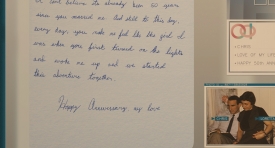 I can't believe it's already been 20 years
since you married me. And still to this day,
every day, you make me feel like the girl I
was when you first turned on the lights
and woke me up and we started
this adventure together.
Happy Anniversary my love
LOVE OF MY LIFE